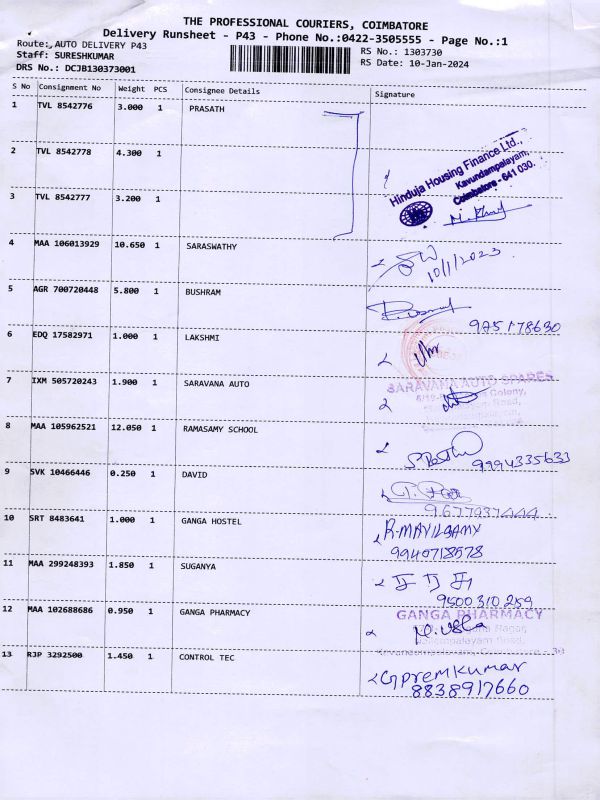 THE PROFESSIONAL COURIERS, COIMBATORE
Delivery Runsheet - P43 - Phone No.:0422-3505555 - Page No.:1
Route: AUTO DELIVERY P43
RS No.: 1303730
Staff: SURESHKUMAR
RS Date: 10-Jan-2024
DRS No.: DCJB130373001
S No Consignment No Weight PCS Consignee Details Signature
1 TVL 8542776 3.000 1 PRASATH
2 TVL 8542778 4.300 1
Hinduja Housing Finance Ltd.,
Kavundampalayam,
Coimbatore - 641 030.
3 TVL 8542777 3.200 1
4 MAA 106013929 10.650 1 SARASWATHY
10/1/2023
5 AGR 700720448 5.800 1 BUSHRAM
975178630
6 EDQ 17582971 1.000 1 LAKSHMI
7 IXM 505720243 1.900 1 SARAVANA AUTO
SARAVANA AUTO SPARES
8 MAA 105962521 12.050 1 RAMASAMY SCHOOL
9994335633
9 SVK 10466446 0.250 1 DAVID
10 SRT 8483641 1.000 1 GANGA HOSTEL
R.MAYILSAMY
9940718578
11 MAA 299248393 1.850 1 SUGANYA
9500310259
12 MAA 102688686 0.950 1 GANGA PHARMACY
GANGA PHARMACY
M.Usha
13 RJP 3292500 1.450 1 CONTROL TEC
G premkumar
8838917660